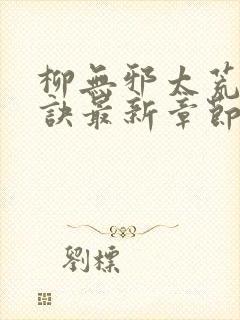 柳無邪太荒
訣最新章節
劉標